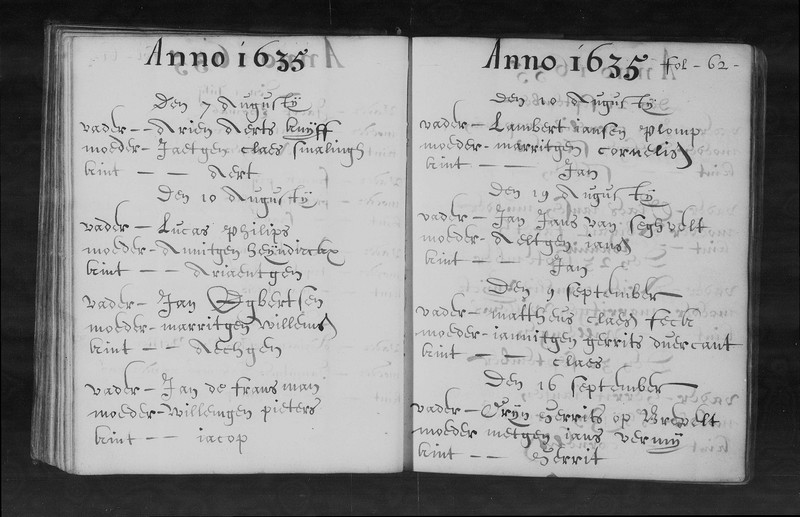 Anno 1635
Den 7 Augusty
vader -- Arien Aerts knyff
moeder - Jaetgen claes smalingh
kint -- Aert
Den 10 Augusty
vader - Lucas philips
moeder - Annitgen heyndirckx
kint -- Ariaentgen
vader - Jan Egbertsen
moeder - marritgen willems
kint -- Aechgen
vader - Jan de frans man
moeder - willemgen pieters
kint -- iacop
Anno 1635 fol - 62 -
Den 10 Augusty
vader - Lambert iansen plomp
moeder - marritgen cornelis
kint -- Jan
Den 19 Augusty
vader - Jan Jans van seghvelt
moeder - Aeltgen ians
kint -- Jan
Den 9 september
vader - mattheus claes
moeder - iannitgen gerrits duercant
kint -- claes
Den 16 september
vader - Cryn Gerrits op
moeder metgen ians vermy
kint -- Gerrit